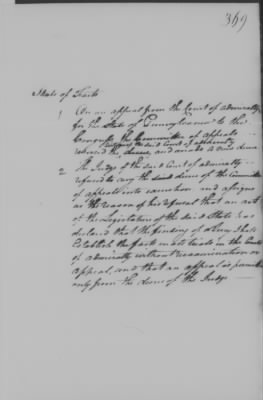 369
State of Facts
1 On an appeal from the Court of admiralty
for the State of Pennsylvania to the
Congress the Committee of Appeals
of the said Court of admiralty
reversed the decree, and made a new decree
2 The Judge of the said Court of admiralty
refused to carry the decree of the Committee
of appeals into execution and assigns
as the reason of his refusal that an act
of the Legislature of the said State has
declared that the finding of a Jury shall
Establish the fact in all trials in the Courts
of admiralty without reexamination or
appeal, and that an appeal is permitted
only from the decree of the Judge